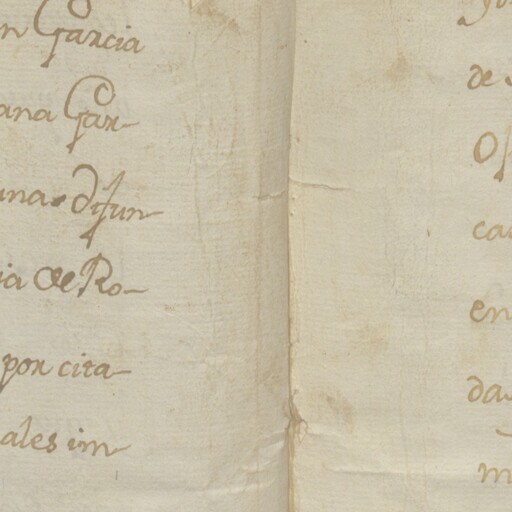 n Garcia
ana Gar-
una difun-
ia de Ro-
por cita-
ales im-
de
Of
ca
en
da
m